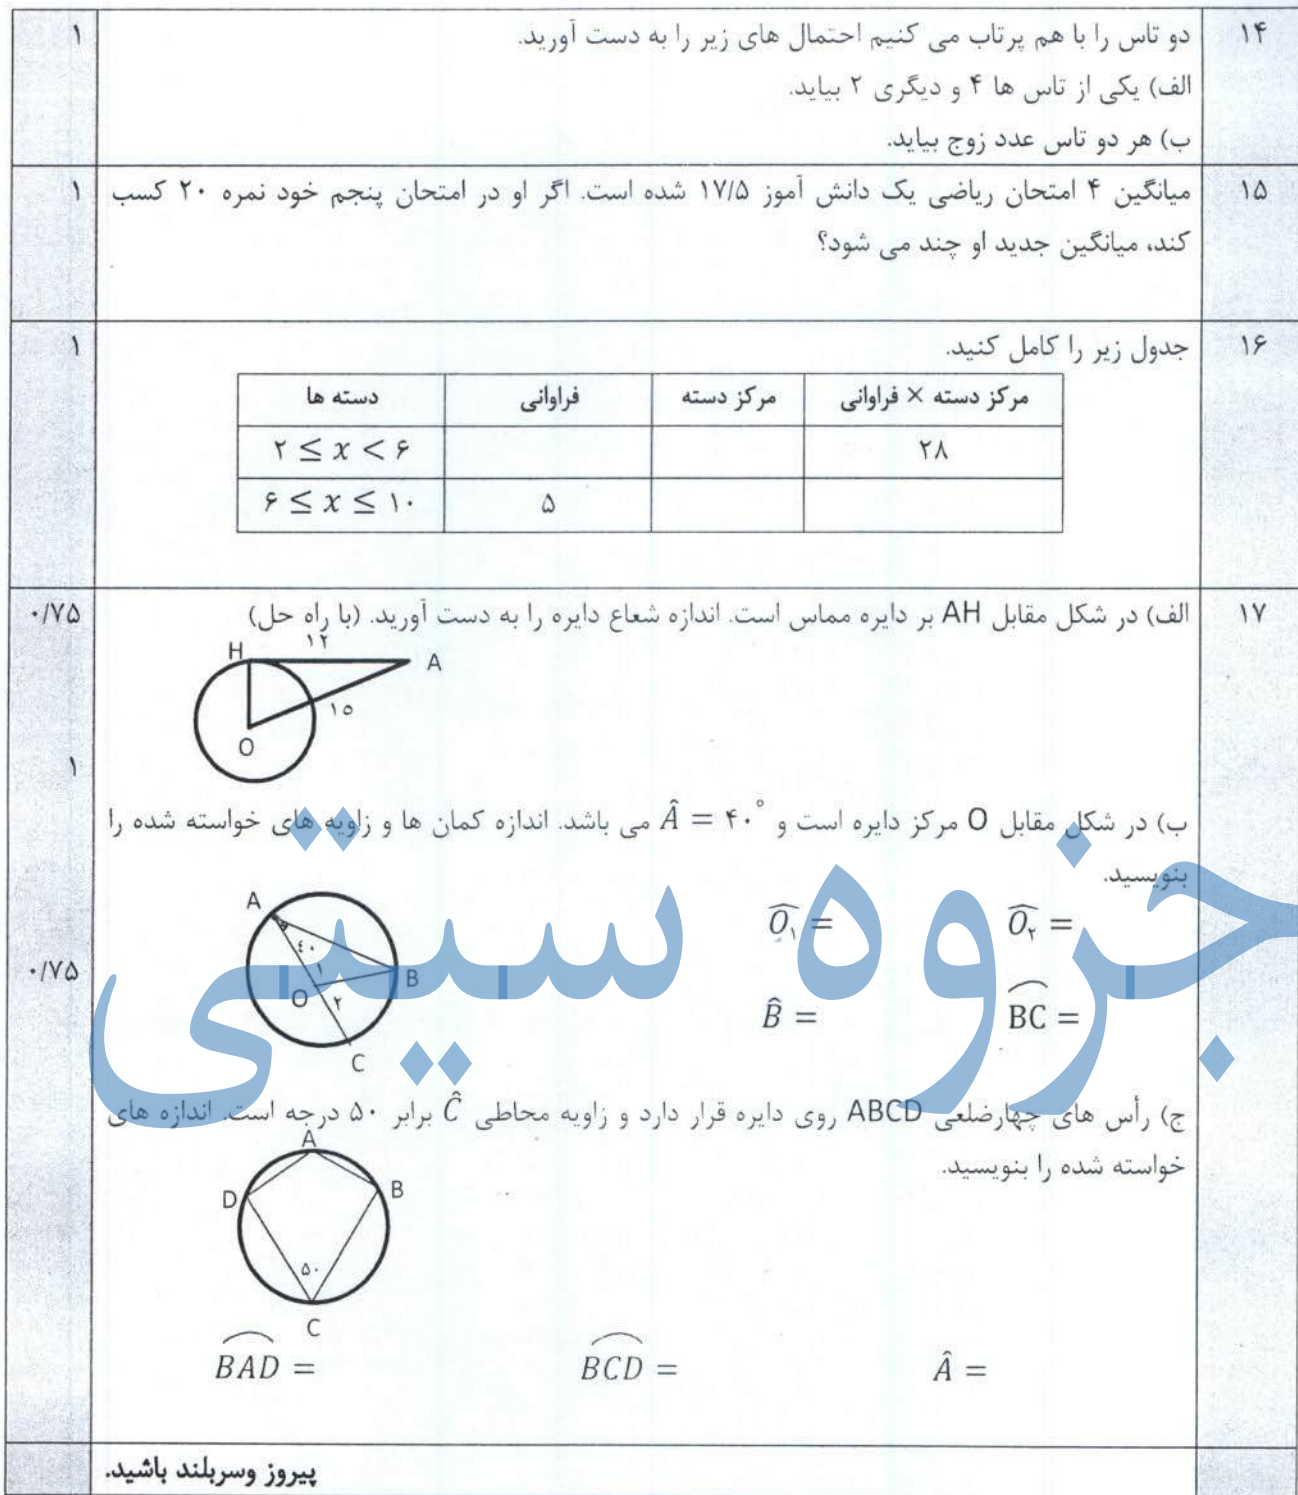 ۱۴ دو تاس را با هم پرتاب می کنیم احتمال های زیر را به دست آورید. ۱
الف) یکی از تاس ها ۴ و دیگری ۲ بیاید.
ب) هر دو تاس عدد زوج بیاید.
۱۵ میانگین ۴ امتحان ریاضی یک دانش آموز ۱۷/۵ شده است. اگر او در امتحان پنجم خود نمره ۲۰ کسب ۱
کند، میانگین جدید او چند می شود؟
۱۶ جدول زیر را کامل کنید. ۱
مرکز دسته × فراوانی مرکز دسته فراوانی دسته ها
۲۸ ۲ ≤ x < ۶
۵ ۶ ≤ x ≤ ۱۰
۱۷ الف) در شکل مقابل AH بر دایره مماس است. اندازه شعاع دایره را به دست آورید. (با راه حل) ۰/۷۵
H ۱۲ A
۱۵
O
۱
ب) در شکل مقابل O مرکز دایره است و Â = ۴۰° می باشد. اندازه کمان ها و زاویه های خواسته شده را
بنویسید.
A ۴۰ ۱ O ۲ B C
Ô۱ = Ô۲ =
B̂ = BC =
۰/۷۵
ج) رأس های چهارضلعی ABCD روی دایره قرار دارد و زاویه محاطی Ĉ برابر ۵۰ درجه است. اندازه های
خواسته شده را بنویسید.
A
D B
۵۰
C
BAD = BCD = Â =
پیروز وسربلند باشید.
جزوه سیتی